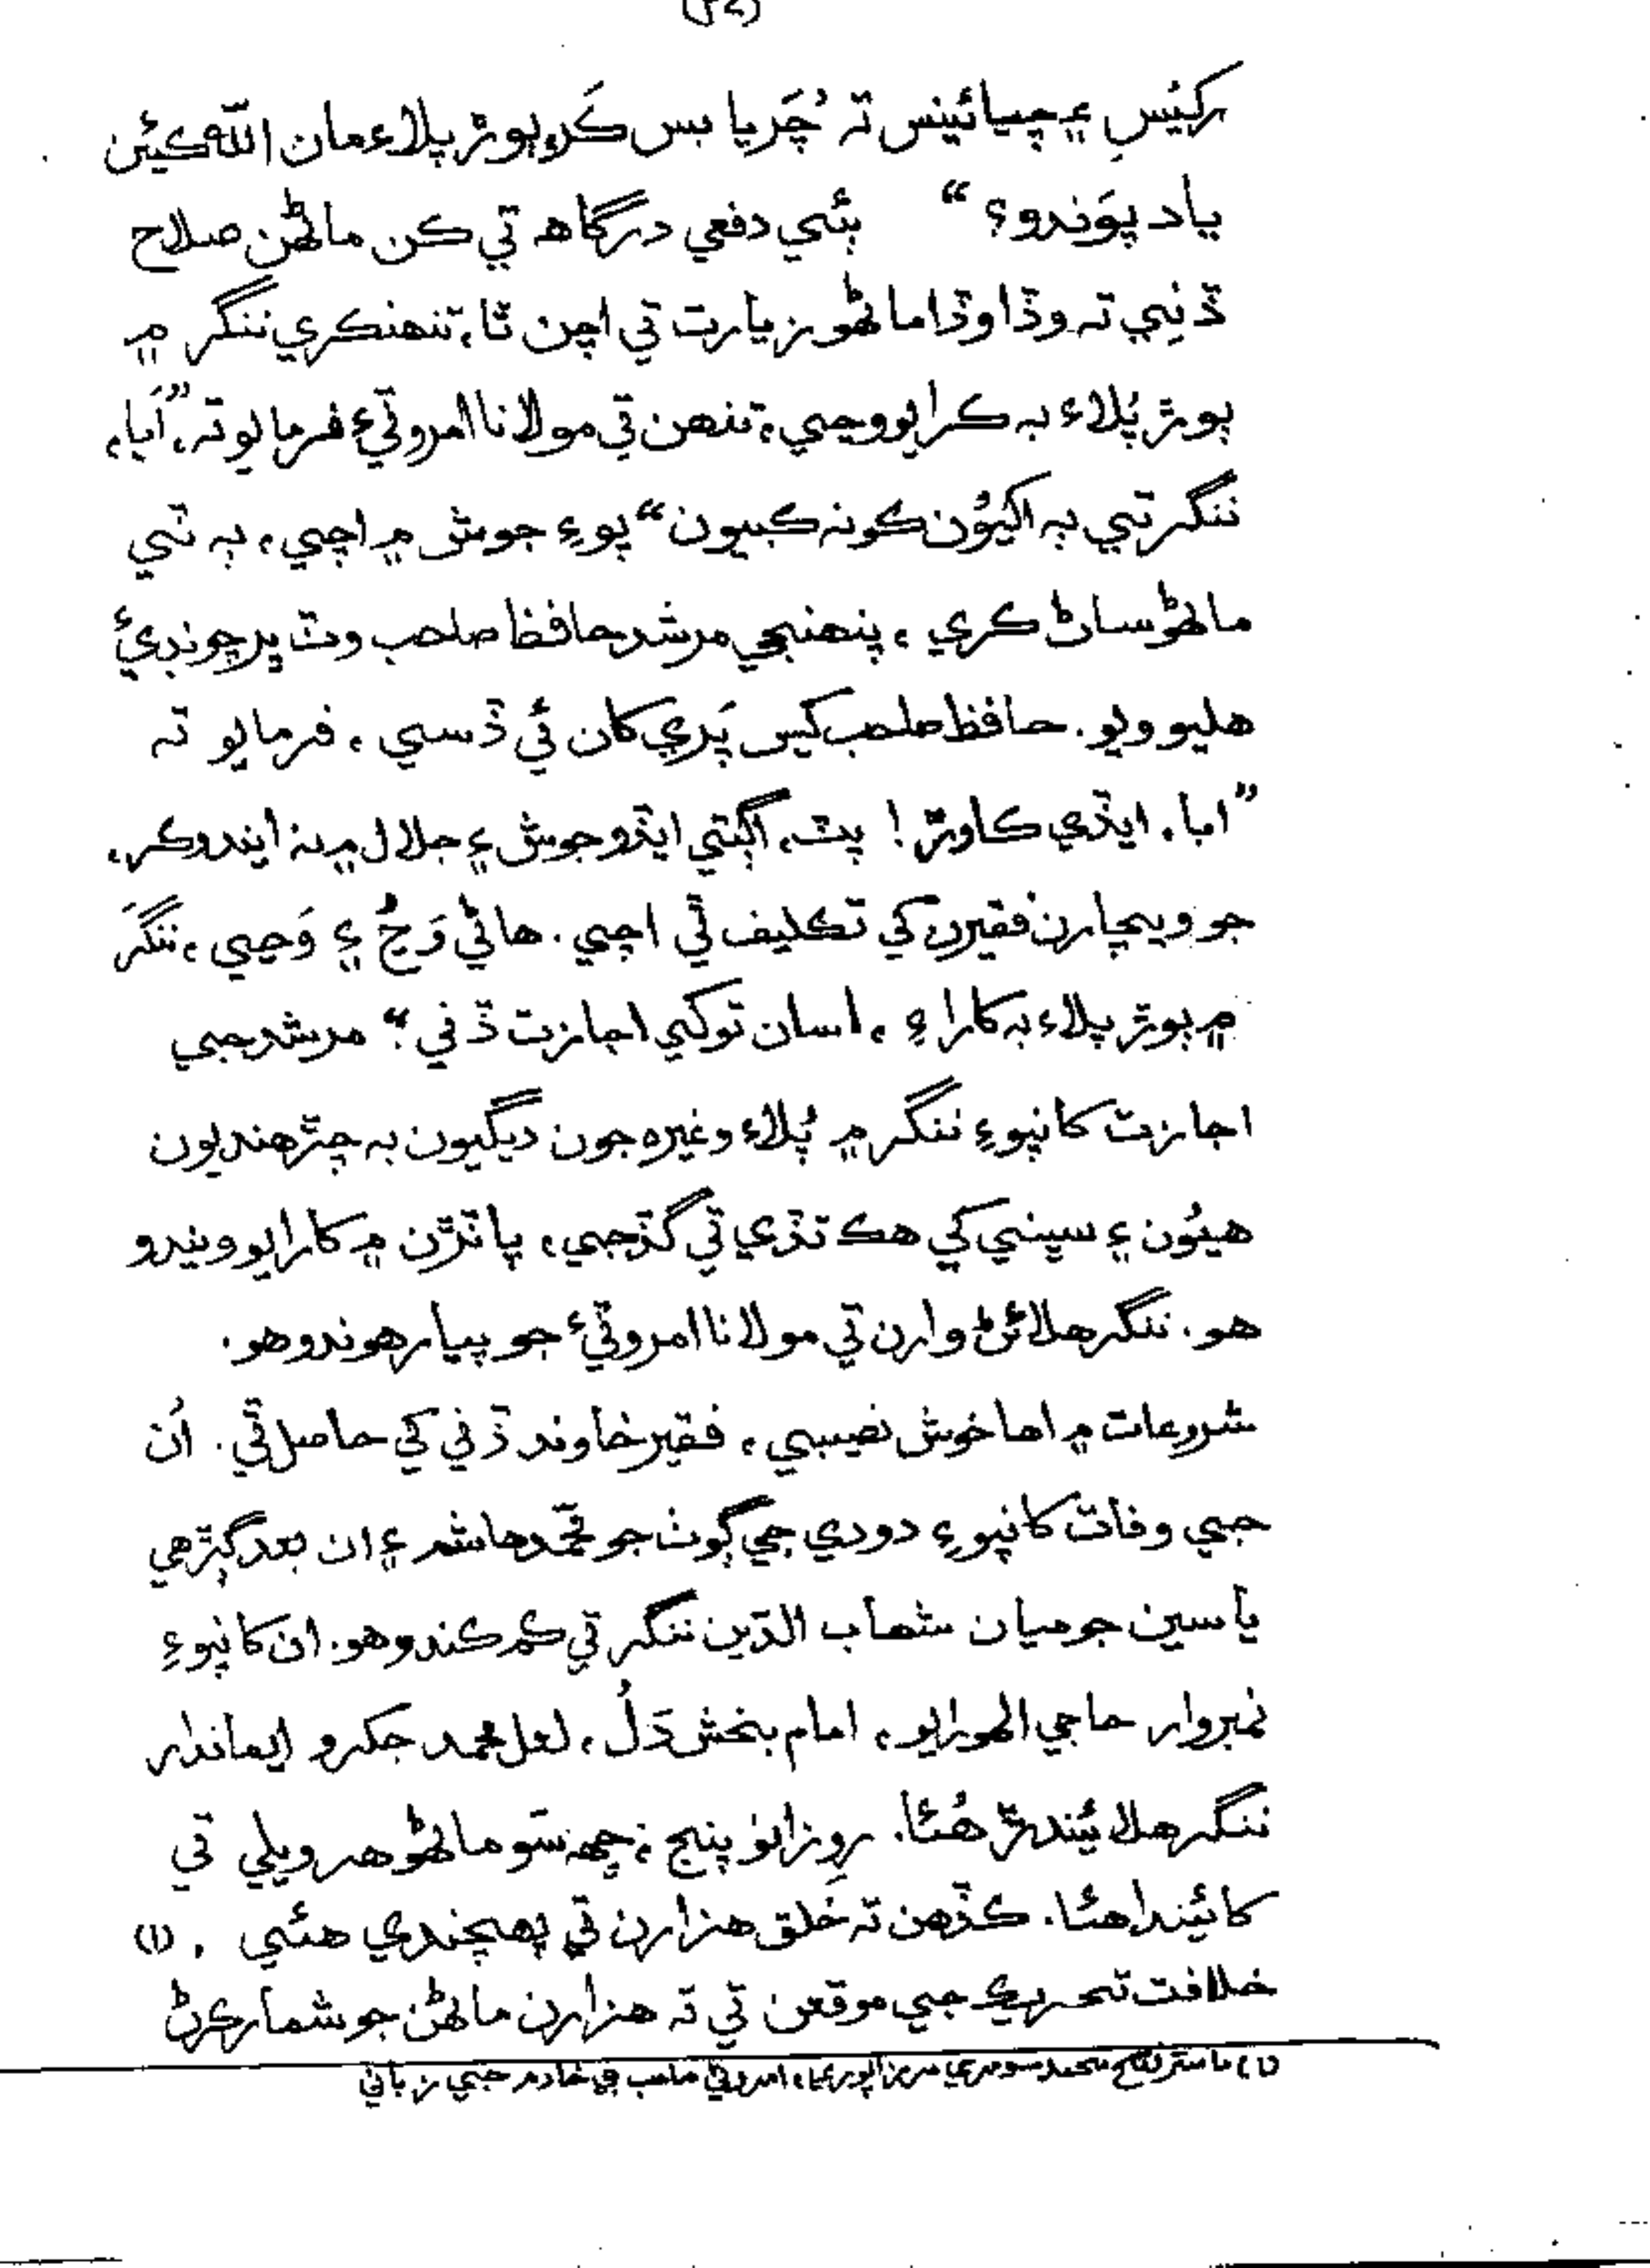 رکيُسِ ۽ چيائينس تہ چُريا بس ڪَر، ٻوڙ پلاءَ مان اللّٰه ڪيئن
ياد پوَندو؟“ ٻئي دفعي درگاھ تي ڪن ماڻهن صلاح
ڏنِي تہ وڏا وڏا ماڻهو زيارت تي اچن ٿا، تنهنڪري ننگر ۾
ٻوڙ پُلاءُ بہ ڪرايو وڃي، تنهن تي مولانا امروٽيءَ فرمايو تہ، ”اَبا،
ننگر تي بہ اکيُون کونہ کبيون“ پوءِ جوش ۾ اچي، ٻہ ٽي
ماڻهو ساڻ ڪري، پنهنجي مرشد حافظ صاحب وٽ ڀرچونڊيءَ
هليو ويو. حافظ صاحب کيس پَري کان ئي ڏسي، فرمايو تہ
”ابا، ايڏي ڪاوڙ! پٽ، اڳتي ايڏو جوش ۽ جلال ۾ نہ ايندو ڪر،
جو ويچارن فقيرن کي تڪليف ٿي اچي. هاڻي وَڃُ ۽ وَڃي، ننگَرَ
۾ ٻوڙ پلاءُ بہ کاراءِ، اسان توکي اجازت ڏني.“ مرشد جي
اجازت کانپوءِ ننگر ۾ پُلاءُ وغيره جون ديڳيون بہ چڙهنديون
هيُون ۽ سڀني کي هڪ تڏي تي گڏجي، پاٽڙن ۾ کارايو ويندو
هو. ننگر هلائڻ وارن تي مولانا امروٽيءَ جو پيار هوندو هو.
شروعات ۾ اها خوش نصيبي، فقير خاوند ڏني کي حاصل ٿي. اُن
جي وفات کانپوءِ دودي جي ڳوٺ جو محمّد هاشم ۽ ان بعد ڳڙهي
ياسين جو ميان شهاب الدّين ننگر تي ڪم ڪندو هو. ان کانپوءِ
نمبروار حاجي الهورايو، امام بخش دَلُ، لعل محمد جکرو ايماندار
ننگر هلائيندڙ هُئا. روزانو پنج، ڇهہ سَو ماڻهو هر ويلي تي
کائيندا هئا. ڪڏهن تہ خَلق هزارن تي پهچندي هئي. (١)
خلافت تحريڪ جي موقعن تي تہ هزارن ماڻهن جو شمار ڪرڻ
(١) ماستر فتح محمد سومري مرزاپوريءَ، امروٽي صاحب جي خادم جي زباني